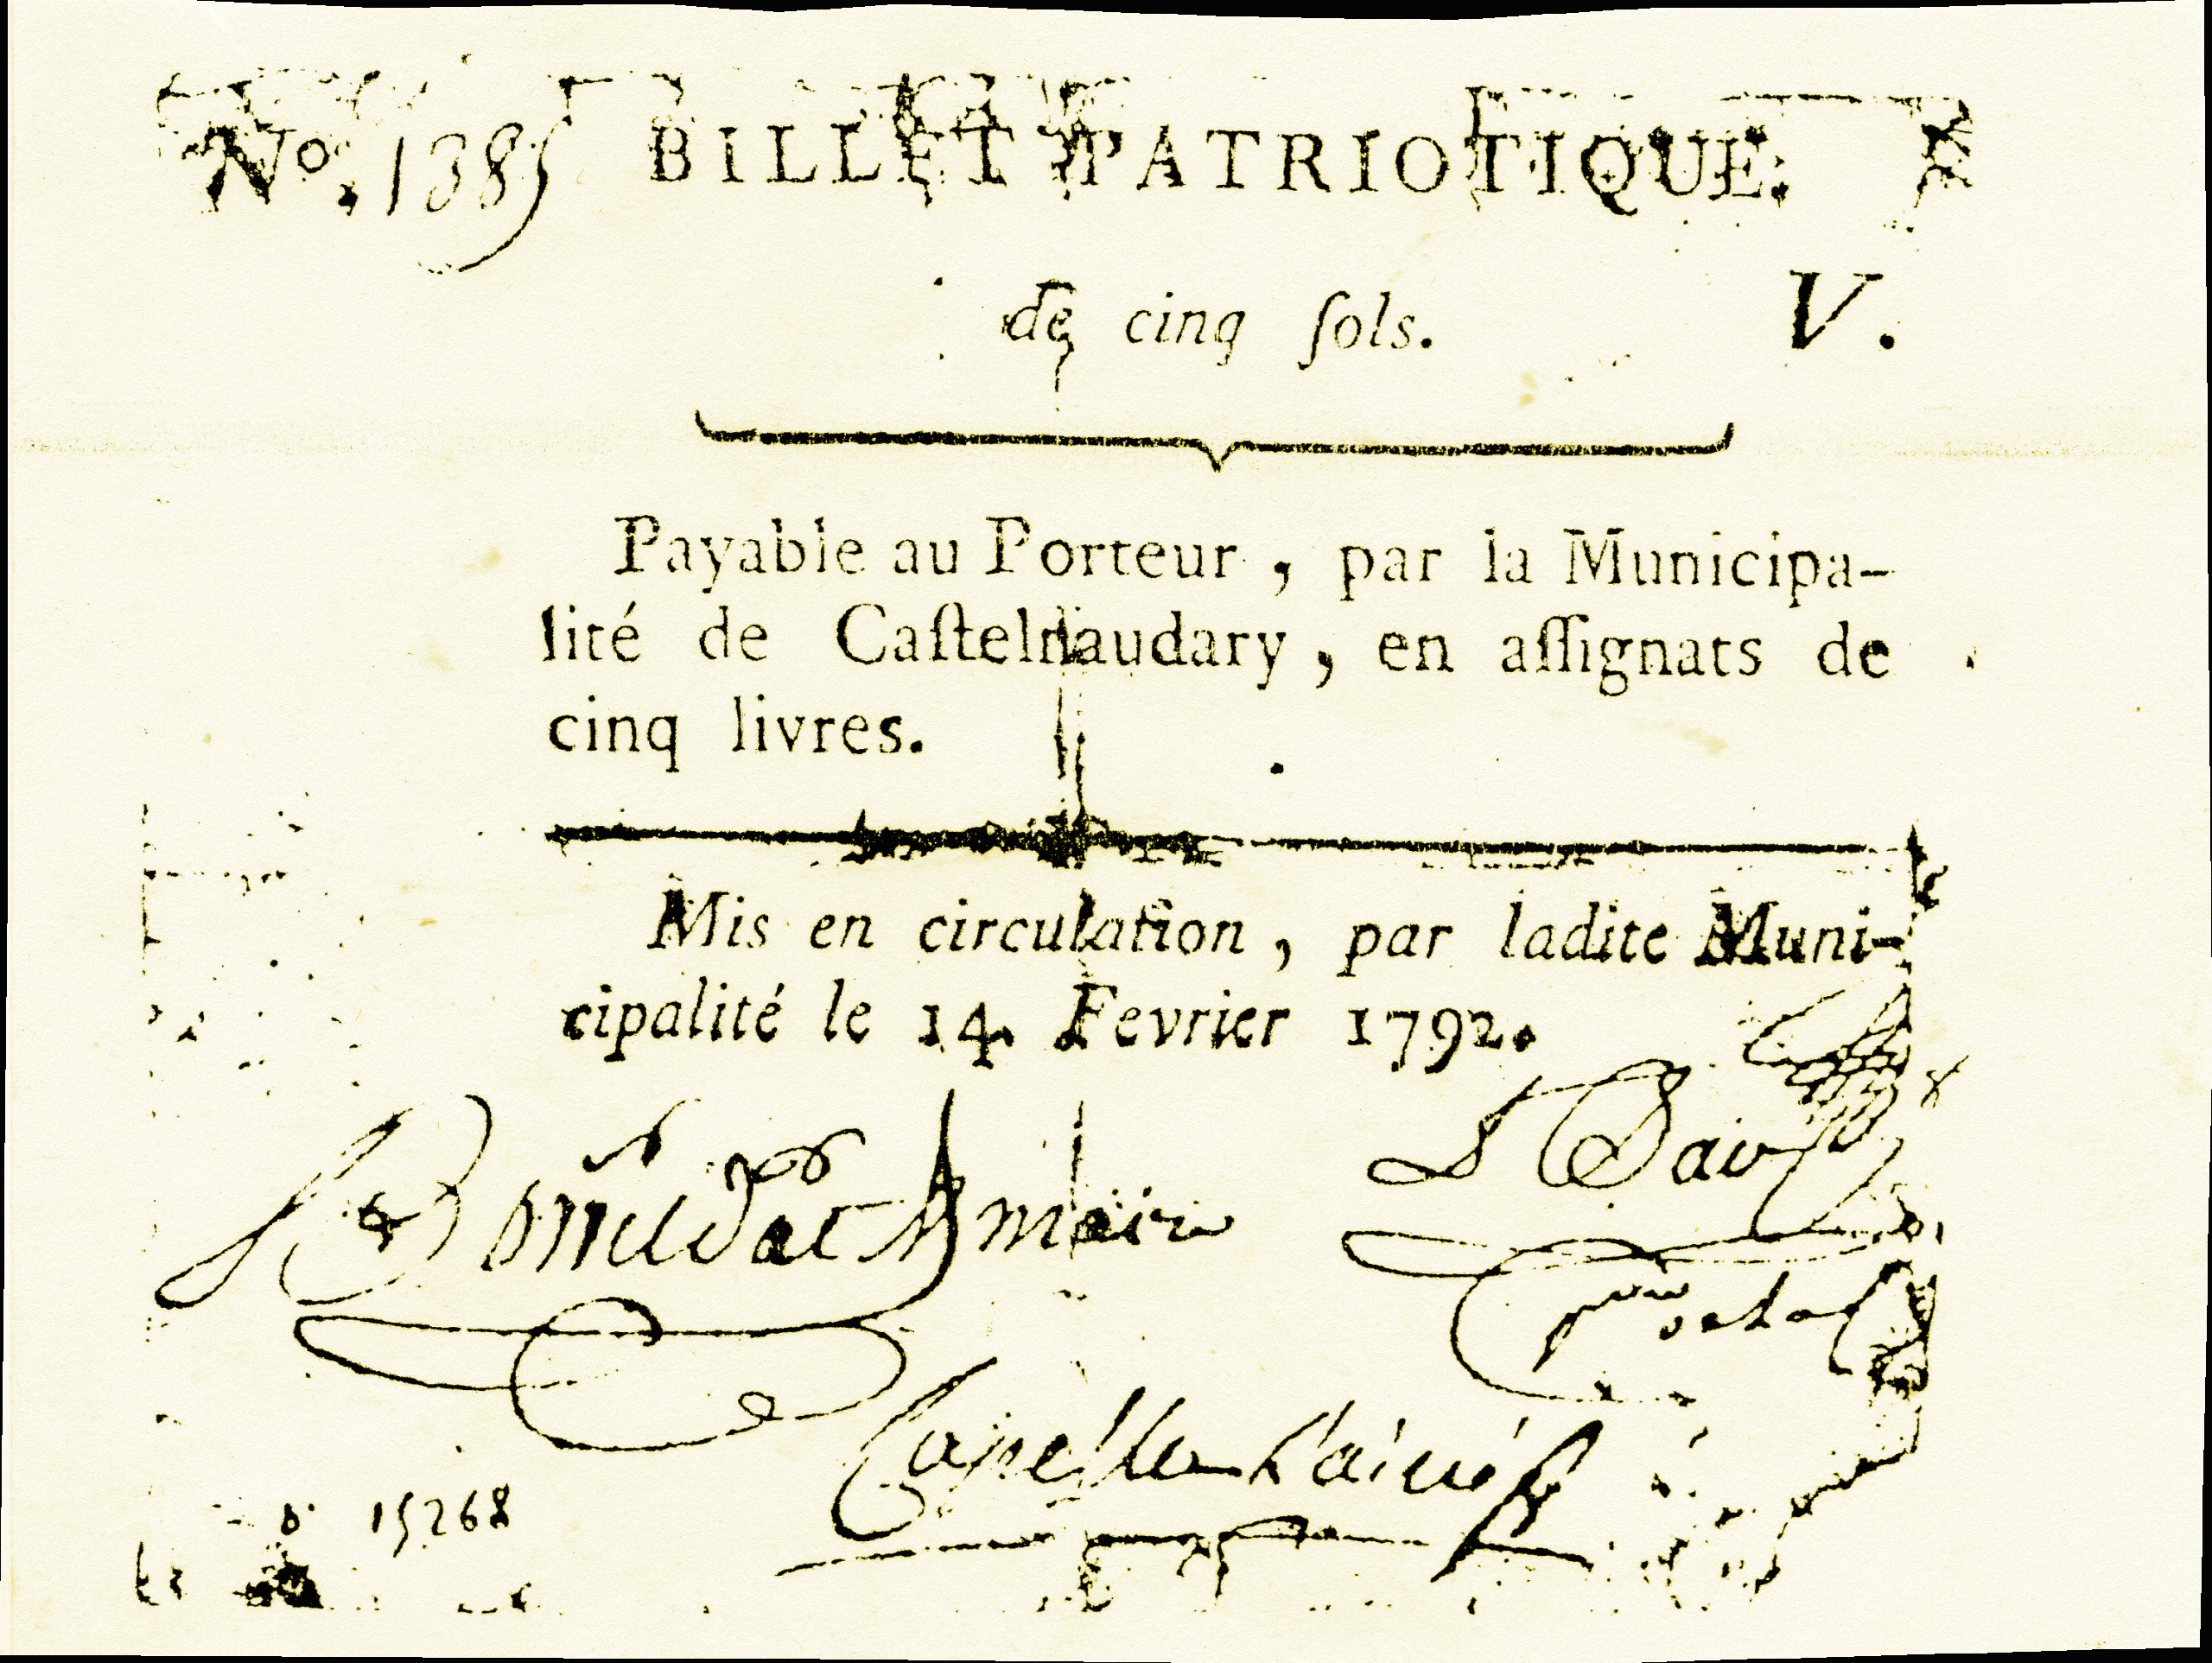 Nº. 1385 BILLET PATRIOTIQUE.
de cinq ſols. V.
Payable au Porteur, par la Municipa-
lité de Caſtelnaudary, en aſſignats de
cinq livres.
Mis en circulation, par ladite Muni-
cipalité le 14. Fevrier 1792.
maire
Capelle L'ainé
15268